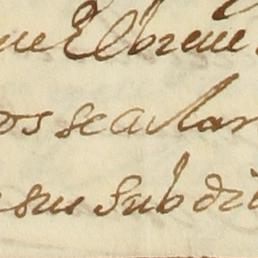 ue El breue
os se aclar
sus subdi